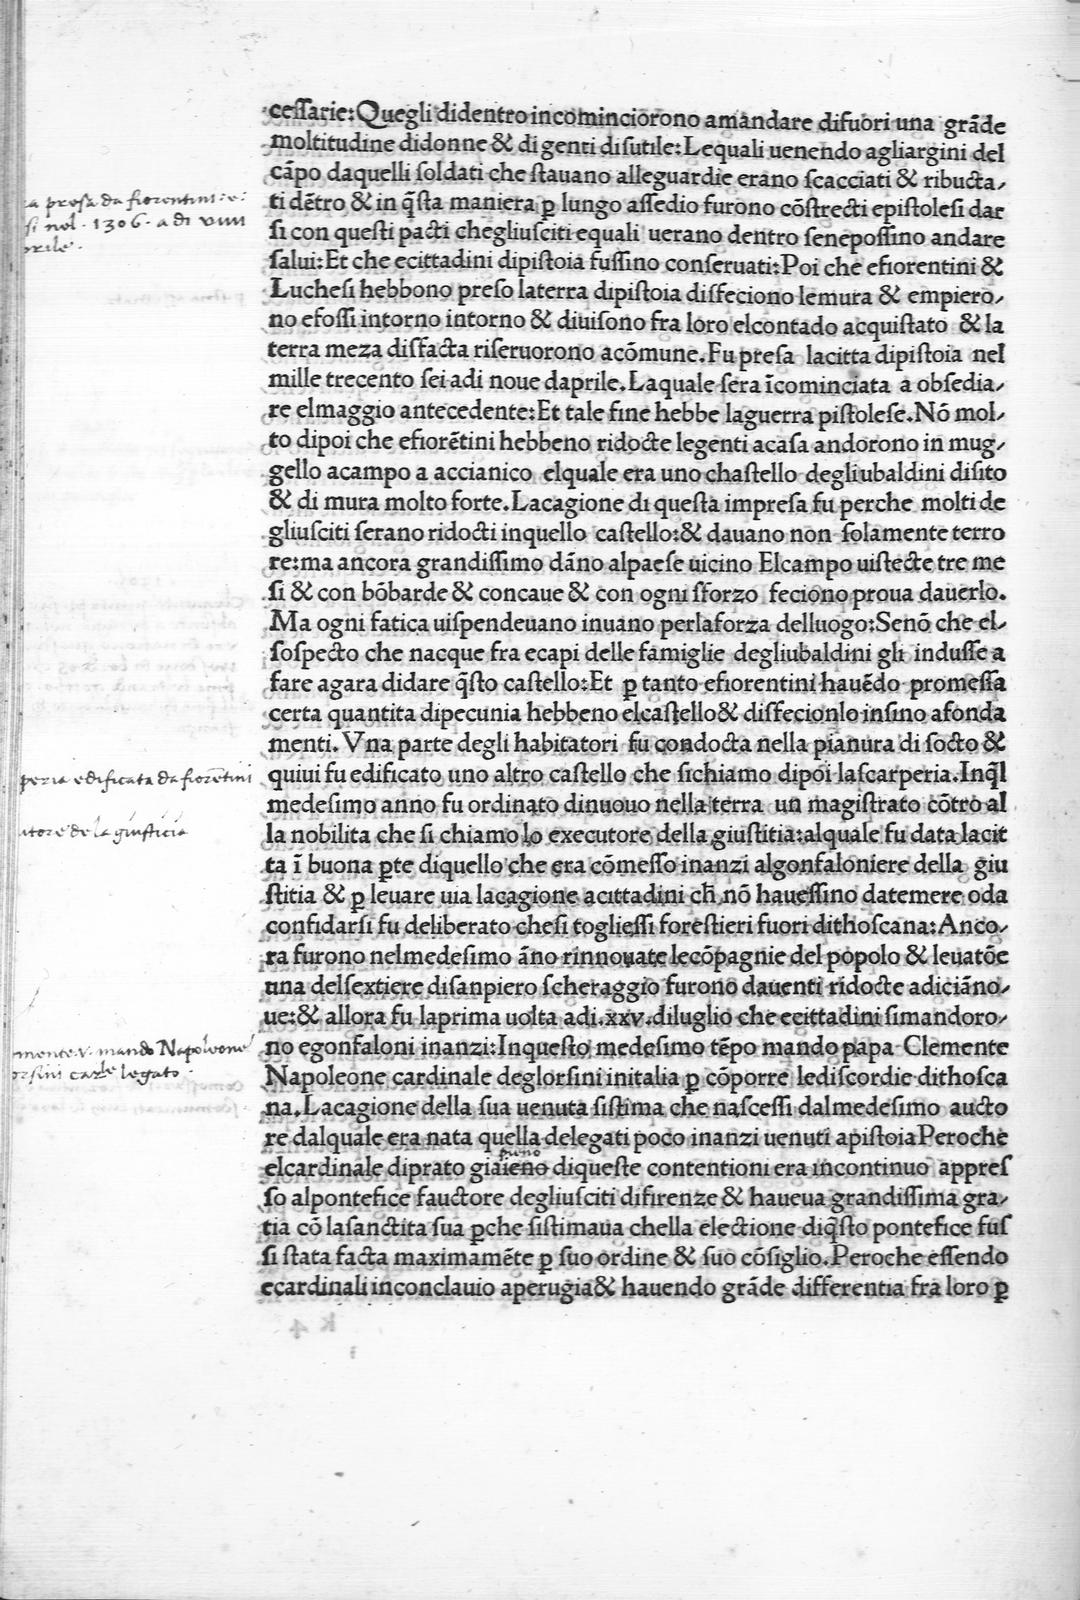 ceſſarie:Quegli didentro incominciorono amandare difuori una grãde
moltitudine didonne & di genti diſutile:Lequali uenendo agliargini del
cãpo daquelli ſoldati che ſtauano alleguardie erano ſcacciati & ributta,
ti dẽtro & in q̃ſta maniera ꝑ lungo aſſedio furono cõſtrecti epiſtoleſi dar
ſi con queſti pacti chegliuſciti equali uerano dentro ſenepoſſino andare
ſalui:Et che ecittadini dipiſtoia fuſſino conſeruati:Poi che efiorentini &
Lucheſi hebbono preſo laterra dipiſtoia diſfeciono lemura & empiero,
no efoſſi intorno intorno & diuiſono fra loro elcontado acquiſtato & la
terra meza diſfacta riſeruorono acõmune.Fu preſa lacitta dipiſtoia nel
mille trecento ſei adi noue daprile.Laquale ſera ĩcominciata a obſedia,
re elmaggio antecedente:Et tale fine hebbe laguerra piſtoleſe.Nõ mol,
to dipoi che efiorẽtini hebbeno ridocte legenti acaſa andorono in mug,
gello acampo a accianico elquale era uno chaſtello degliubaldini diſito
& di mura molto forte.Lacagione di queſta impreſa fu perche molti de
gliuſciti ſerano ridocti inquello caſtello:& dauano non ſolamente terro
re:ma ancora grandiſſimo dãno alpaeſe uicino Elcampo uiſtecte tre me
ſi & con bõbarde & concaue & con ogni ſforzo feciono proua dauerlo.
Ma ogni fatica uiſpendeuano inuano perlaforza delluogo:Senõ che el,
ſoſpecto che nacque fra ecapi delle famiglie degliubaldini gli induſſe a
fare agara didare q̃ſto caſtello:Et ꝑ tanto efiorentini hauẽdo promeſſa
certa quantita dipecunia hebbeno elcaſtello& diſfecionlo inſino afonda
menti.Vna parte degli habitatori fu condocta nella pianura di ſocto &
quiui fu edificato uno altro caſtello che ſichiamo dipoi laſcarperia.Inq̃l
medeſimo anno fu ordinato dinuouo nella terra un magiſtrato cõtro al
la nobilita che ſi chiamo lo executore della giuſtitia:alquale fu data lacit
ta ĩ buona ꝑte diquello che era cõmeſſo inanzi algonfaloniere della giu
ſtitia & ꝑ leuare uia lacagione acittadini ch̃ nõ haueſſino datemere oda
confidarſi fu deliberato cheſi toglieſſi foreſtieri fuori dithoſcana:Anco,
ra furono nelmedeſimo ãno rinnouate lecõpagnie del popolo & leuatõe
una delſextiere diſanpiero ſcheraggio furono dauenti ridocte adiciãno,
ue:& allora fu laprima uolta adi.xxv.diluglio che ecittadini ſimandoro,
no egonfaloni inanzi:Inqueſto medeſimo tẽpo mando papa Clemente
Napoleone cardinale deglorſini initalia ꝑ cõporre lediſcordie dithoſca
na.Lacagione della ſua uenuta ſiſtima che naſceſſi dalmedeſimo aucto
re dalquale era nata quella delegati poco inanzi uenuti apiſtoiaPeroche
elcardinale diprato giaieno diqueſte contentioni era incontinuo appreſ
ſo alpontefice fauctore degliuſciti difirenze & haueua grandiſſima gra,
tia cõ laſanctita ſua ꝑche ſiſtimaua chella electione diq̃ſto pontefice fuſ
ſi ſtata facta maximamẽte ꝑ ſuo ordine & ſuo cõſiglio.Peroche eſſendo
ecardinali inconclauio aperugia& hauendo grãde differentia fra loro ꝑ
a presa da fiorentini
si nel . 1306 . a di viiii
prile .
peria edificata da fiorẽtini
utore de la giustitia
mente .v. mando Napoleone
orsini carle legato
pieno